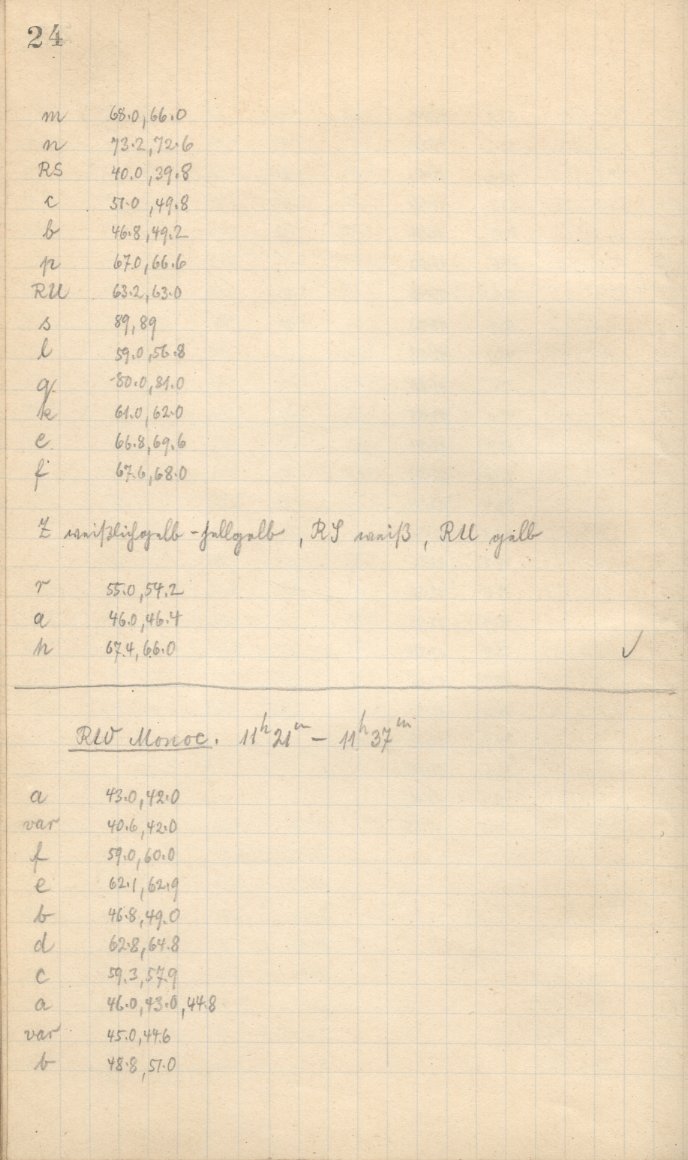 24
m 68.0, 66.0
n 73.2, 72.6
RS 40.0, 39.8
c 51.0, 49.8
b 46.8, 49.2
p 67.0, 66.6
RU 63.2, 63.0
s 89, 89
l 59.0, 56.8
q 80.0, 81.0
k 61.0, 62.0
e 66.8, 69.6
f 67.6, 68.0
Z weißlichgelb - hellgelb, RS weiß, RU gelb
r 55.0, 54.2
a 46.0, 46.4
h 67.4, 66.0 ✓
RW Monoc. 11h 21m – 11h 37m
a 43.0, 42.0
var 40.6, 42.0
f 59.0, 60.0
e 62.1, 62.9
b 46.8, 49.0
d 62.8, 64.8
c 59.3, 57.9
a 46.0, 43.0, 44.8
var 45.0, 44.6
b 48.8, 51.0